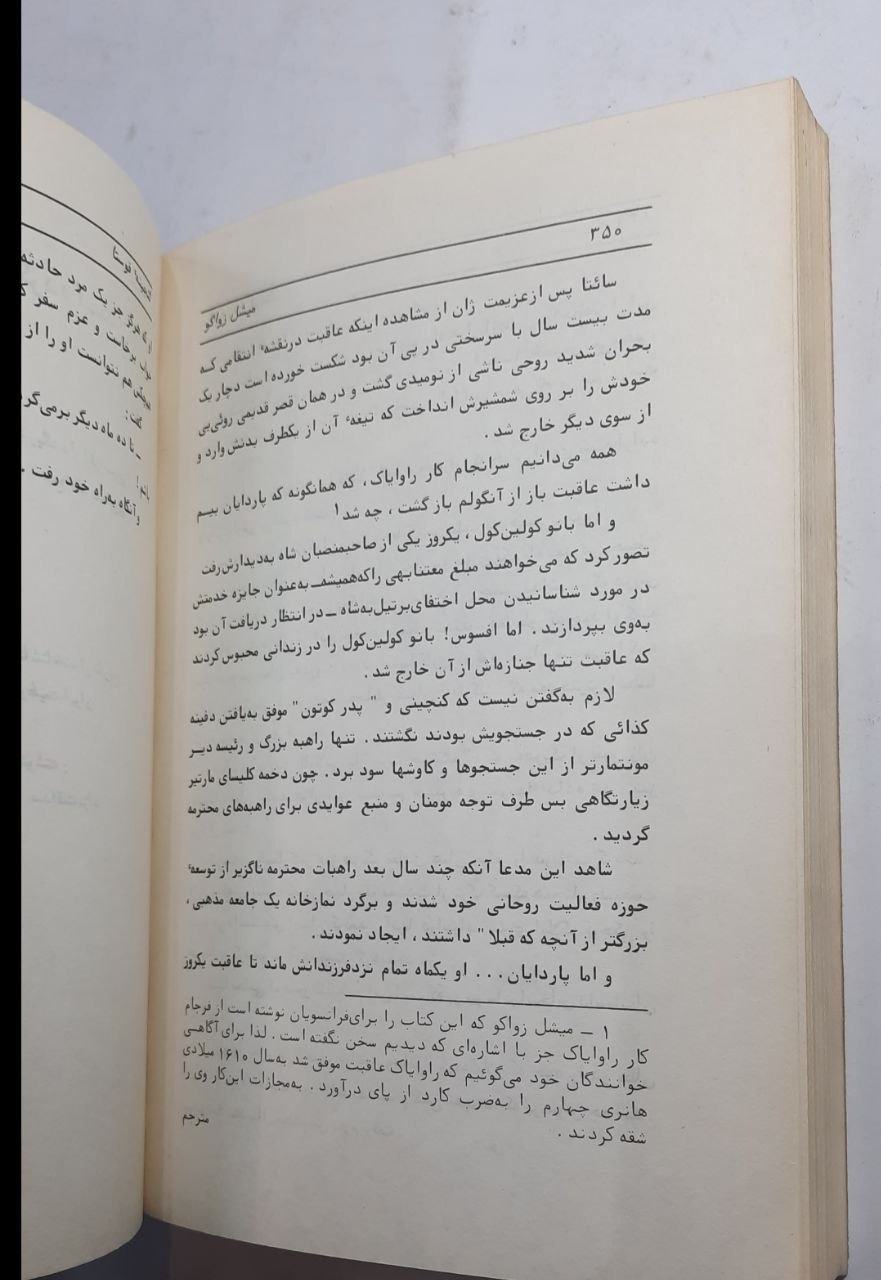 ۳۵۰
میشل زواگو
سائتا پس ازعزیمت ژان از مشاهده اینکه عاقبت درنقشهٔ انتقامی که
مدت بیست سال با سرسختی در پی آن بود شکست خورده است دچار یک
بحران شدید روحی ناشی از نومیدی گشت و در همان قصر قدیمی روئی‌یی
خودش را بر روی شمشیرش انداخت که تیغهٔ آن از یکطرف بدنش وارد و
از سوی دیگر خارج شد .
همه می‌دانیم سرانجام کار راوایاک، که همانگونه که پاردایان بیم
داشت عاقبت باز از آنگولم باز گشت ، چه شد۱
و اما بانو کولین‌کول ، یکروز یکی از صاحبمنصبان شاه به‌دیدارش‌رفت
تصور کرد که می‌خواهند مبلغ معتنابهی راکه‌همیشه‌ــ به‌عنوان جایزه خدمتش
در مورد شناسانیدن محل اختفای‌برتیل‌به‌شاه ــ در انتظار دریافت آن بود
به‌وی بپردازند . اما افسوس! بانو کولین‌کول را در زندانی محبوس کردند
که عاقبت تنها جنازه‌اش از آن خارج شد .
لازم به‌گفتن نیست که کنچینی و " پدر کوتون" موفق به‌یافتن دفینه
کذائی که در جستجویش بودند نگشتند . تنها راهبه بزرگ و رئیسه دیـر
مونتمارتر از این جستجوها و کاوشها سود برد . چون دخمه کلیسای مارتیر
زیارتگاهی بس طرف توجه مومنان و منبع عوایدی برای راهبه‌های محترمه
گردید .
شاهد این مدعا آنکه چند سال بعد راهبات محترمه ناگزیر از توسعهٔ
حوزه فعالیت روحانی خود شدند و برگرد نمازخانه یک جامعه مذهبی ،
بزرگتر از آنچه که قبلا" داشتند ، ایجاد نمودند .
و اما پاردایان . . . او یکماه تمام نزدفرزندانش ماند تا عاقبت یکروز
۱ ــ میشل زواکو که این کتاب را برای‌فرانسویان نوشته است از فرجام
کار راوایاک جز با اشاره‌ای که دیدیم سخن نگفته است . لذا برای آگاهی
خوانندگان خود می‌گوئیم که راوایاک عاقبت موفق شد به‌سال ۱۶۱۰ میلادی
هانری چهارم را به‌ضرب کارد از پای درآورد . به‌مجازات این‌کار وی را
شقه کردند .
مترجم
فوستا
جز یک مرد حادثه
برخاست و عزم سفر
هم نتوانست او را از
گفت :
ــ تا ده ماه دیگر برمی‌گر
و آنگاه به‌راه خود رفت .